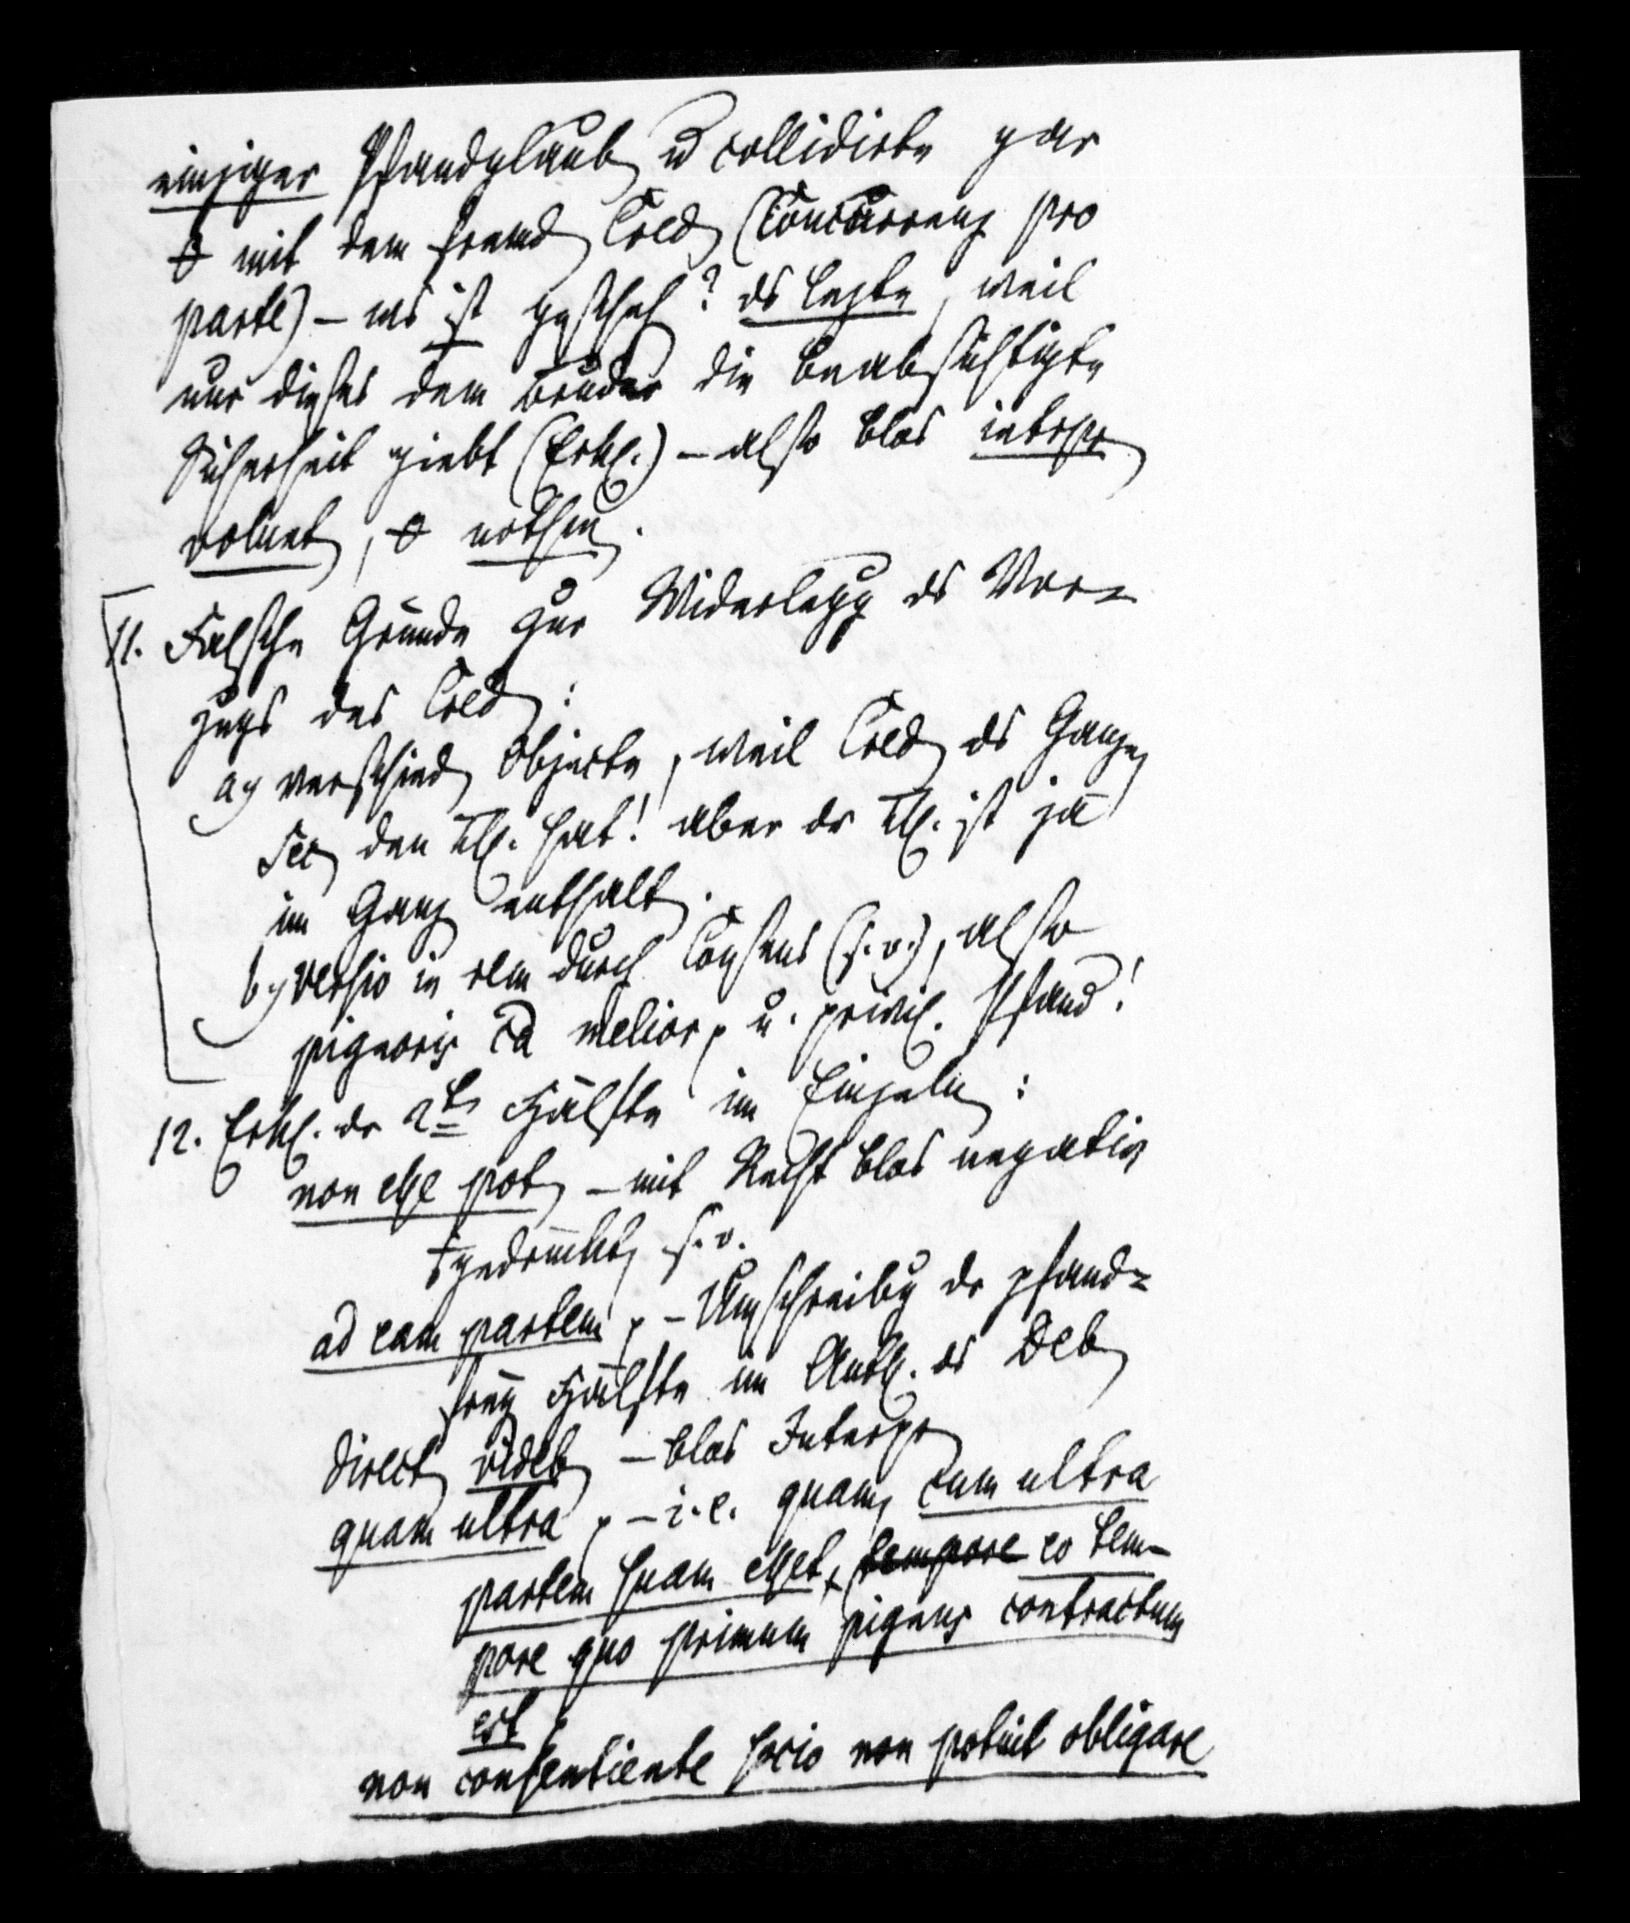 einziger Pfandgläub u collidirte gar
mit dem fremd Cred (Concurrenz pro
parte) – was ist gescheh? ds letzte, weil
nur dieses dem Bruder die beabsichtigte
Sicherheit giebt (Erkl.) – also blos interpr
volunt, nöthig.
11. Falsche Gründe zur Widerlegg ds Vor=
zugs des Cred:
a) verschied Objecte, weil Cred ds Ganze
Sec den Th. hat! aber dr Th. ist ja
im Ganz enthalt.
b) versio in rem durch Consens (s. o.), also
pignoris ca melior u. privil. Pfand!
12. Erkl. dr 2ten Hälfte im Einzeln:
non esse pot – mit Recht blos negativ
s. o.
ad eam partem – Umschreibg dr pfand=
frei Hälfte im Anth. ds Deb
direct videb – blos Interpr
quam ultra – i. e. quam cum ultra
partem suam esset, tempore eo tem-
pore quo primum pignus contractum
est
non consentiente socio non potuit obligare